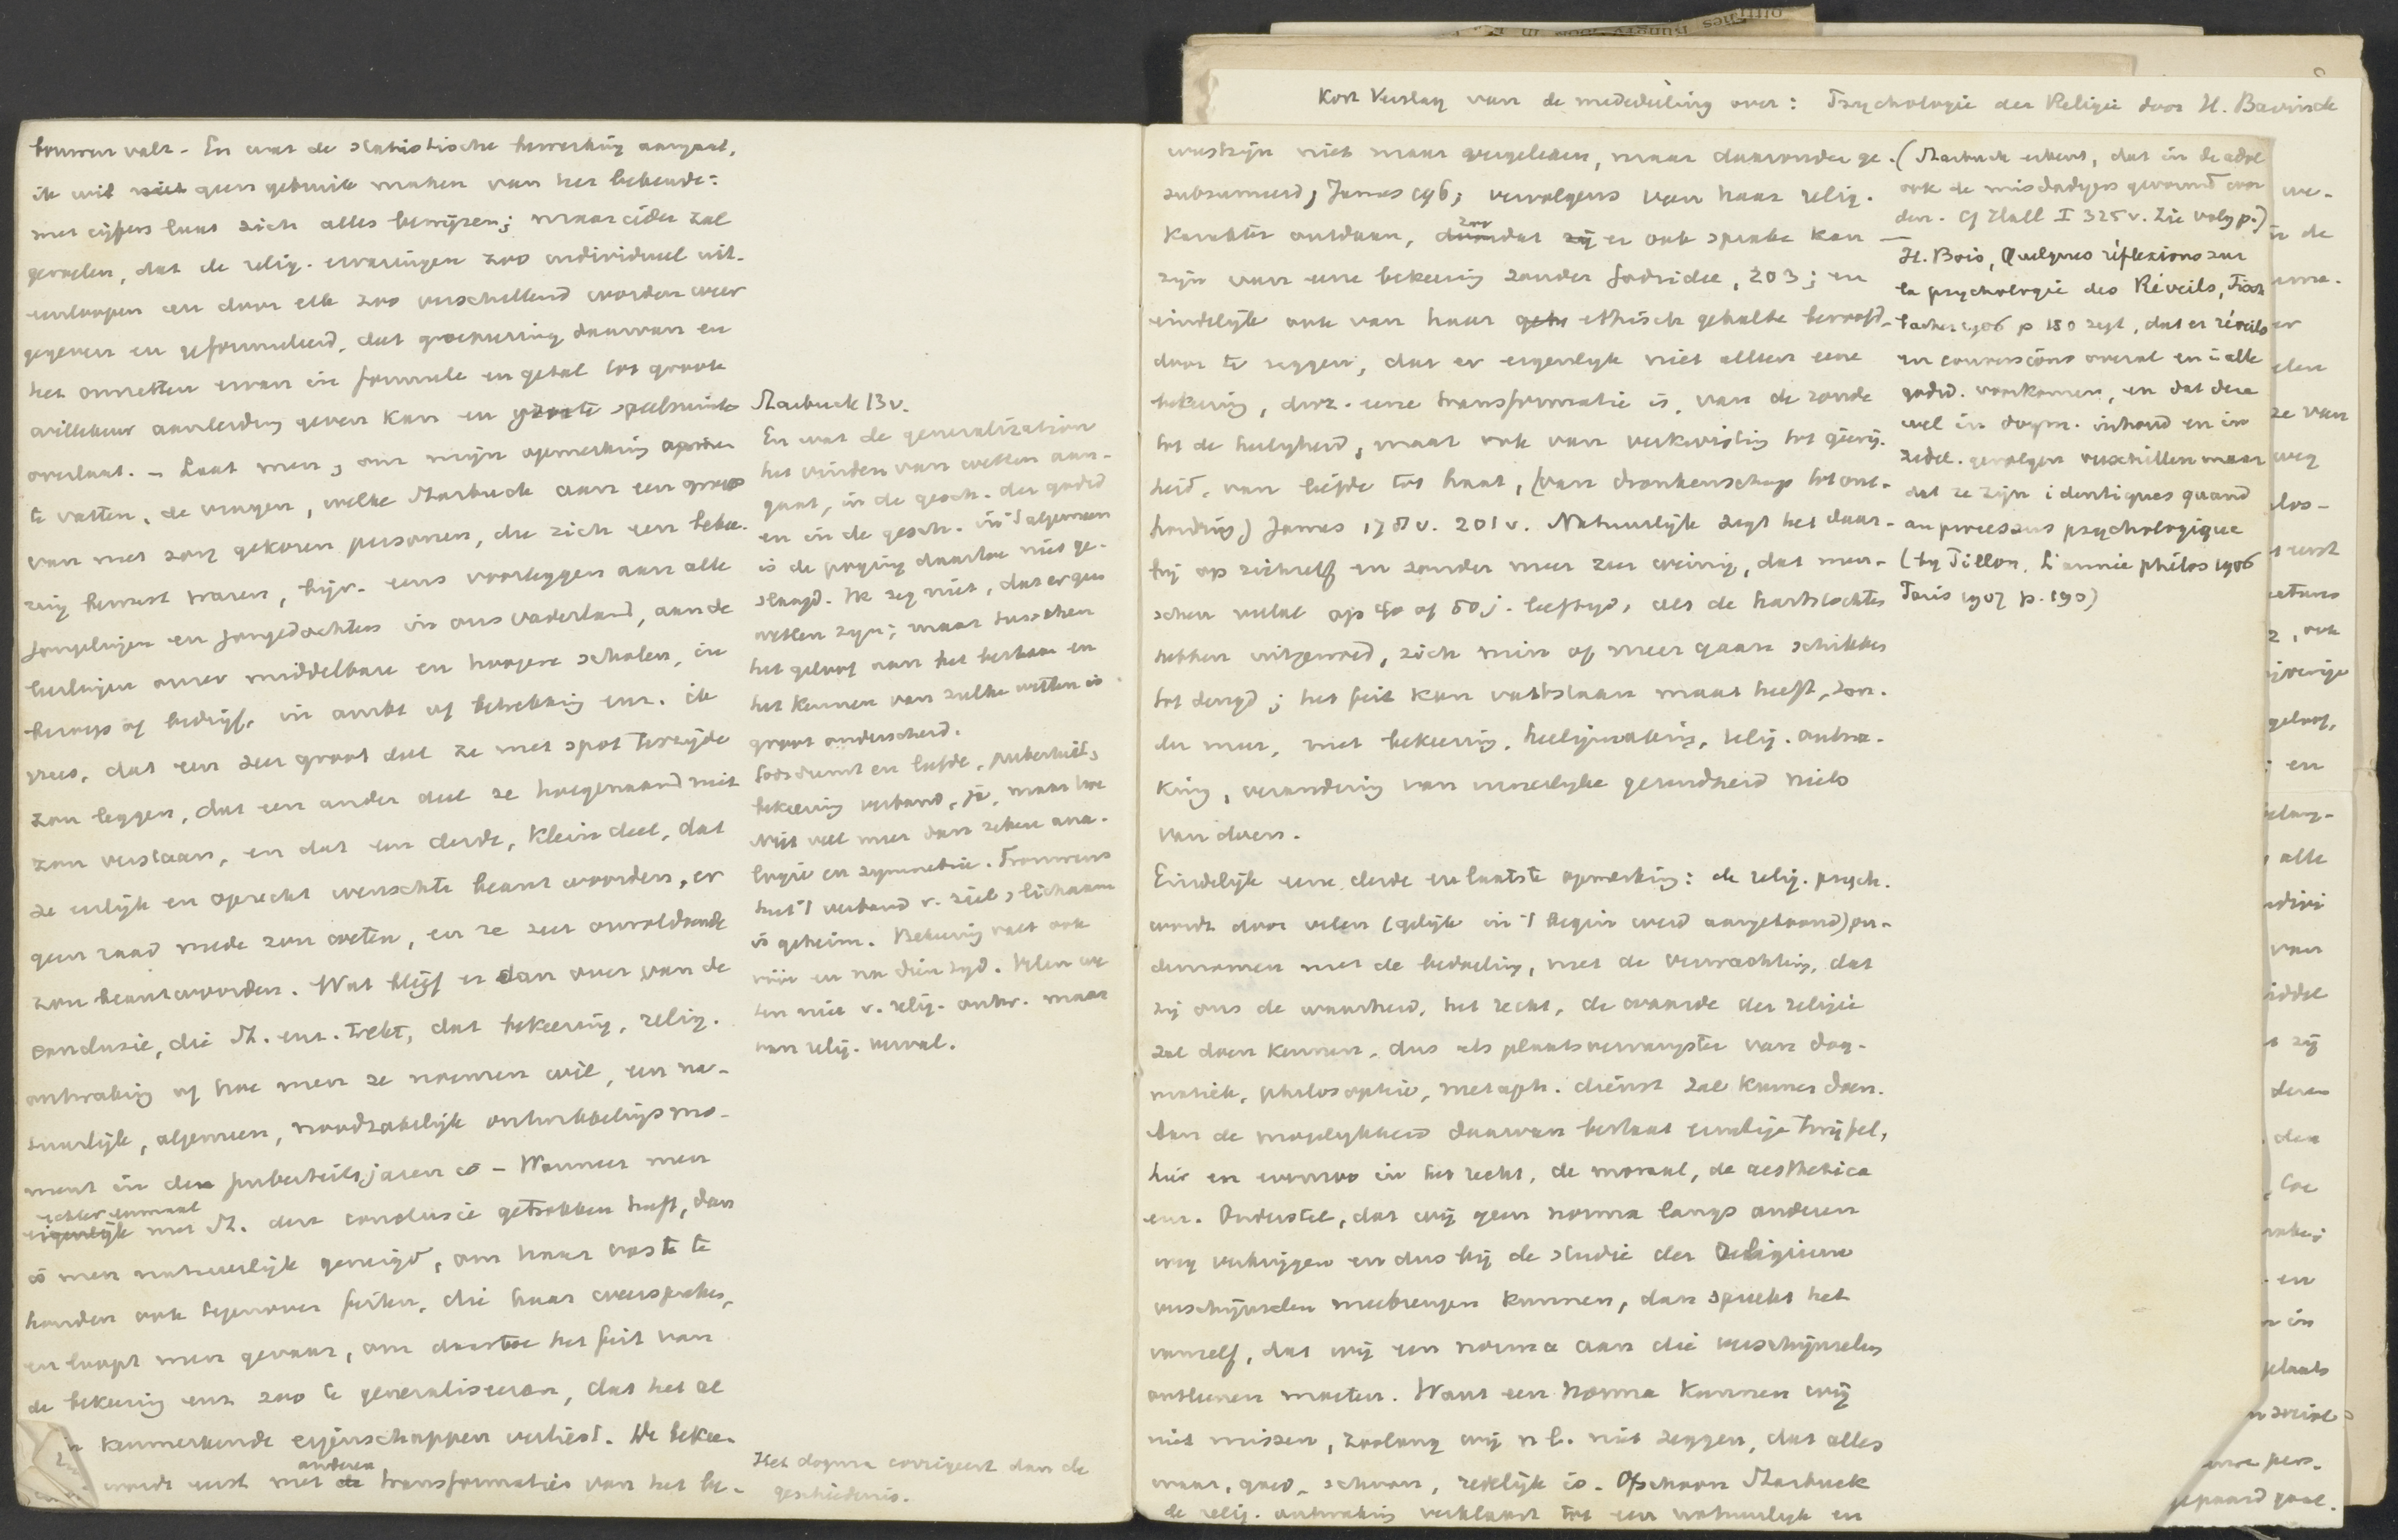 bouwen valt. En wat de statistische bewerking aangaat,
ik wil niet geen gebruik maken van het bekende:
met cijfers laat zich alles bewijzen; maar ieder zal
gevoelen, dat de relig. ervaringen zoo individueel uit-
eenloopen en door elk zoo verschillend worden weer
gegeven en geformuleerd, dat groepeering daarvan en
het omzetten ervan in formule en getal tot groote
willekeur aanleiding geven kan en groote speelruimte
overlaat. - Laat men, om mijn opmerking
te vatten, de vragen, welke Starbuck aan een groep
van met zorg gekozen personen, die zich een bekee-
ring bewust waren, bijv. eens voorleggen aan alle
jongelingen en jongedochters in ons vaderland, aan de
leerlingen onzer middelbare en hoogere scholen, in
beroep of bedrijf, in ambt of betrekking enz. ik
vrees, dat een zeer groot deel ze met spot terzijde
zou leggen, dat een ander deel ze hoegenaamd niet
zou verstaan, en dat een derde, klein deel, dat
ze eerlijk en oprecht wenschte beantwoorden, er
geen raad mede zou weten, en ze zeer onvoldoende
zou beantwoorden. Wat blijft er dan over van de
conclusie, die St. enz. trekt, dat bekeering, relig.
ontwaking of hoe men ze noemen wil, een na-
tuurlijk, algemeen, noodzakelijk ontwikkelingsmo-
ment in den puberteitsjaren is - Wanneer men
echter eenmaal
eigenlijk met St. deze conclusie getrokken heeft, dan
is men natuurlijk geneigd, om haar vast te
houden ook tegenover feiten, die haar weerspreken,
en loopt men gevaar, om daartoe het feit van
de bekeering enz zoo te generaliseeren, dat het al
zijn kenmerkende eigenschappen verliest. De bekee-
anderen
wordt eerst met de transformaties van het be-
Starbuck 13v.
En wat de generalization
het vinden van wetten aan-
gaat, in de gesch. der godsd
en in de gesch. in 't algemeen
is de poging daartoe niet ge-
slaagd. Ik zeg niet, dat er geen
wetten zijn; maar tusschen
het geloof aan het bestaan en
het kennen van zulke wetten is
groot onderscheid.
Godsdienst en liefde, puberteit,
bekeering verband, ja, maar hoe
Niet veel meer dan zekere ana-
logie en symmetrie. Trouwens
heel 't verband v. ziel, lichaam
is geheim. Bekeering valt ook
vóór en na dien tijd. Velen we
ten niet v. relig. ontw. maar
van relig. verval.
Het dogma corrigeert dan de
geschiedenis.
Kort Verslag van de mededeeling over: Psychologie der Religie door H. Bavinck
wustzijn niet maar vergeleken, maar daaronder ge-
subsumeerd, James 196; vervolgens van haar relig.
zoo
karakter ontdaan, dat zij er ook sprake kan
zijn van eene bekeering zonder Godsidee, 203; en
eindelijk ook van haar geh ethisch gehalte beroofd,
door te zeggen, dat er eigenlijk niet alleen eene
bekeering, d.w.z. eene transformatie is, van de zonde
tot de heiligheid, maar ook van verkwisting tot gierig-
heid, van liefde tot haat, (van dronkenschap tot ont-
houding) James 178v. 201v. Natuurlijk zegt het daar-
bij op zichzelf en zonder meer zeer weinig, dat men-
schen veelal op 40 of 50 j. leeftijd, als de hartstochten
hebben uitgewoed, zich min of meer gaan schikken
tot deugd; het feit kan vaststaan maar heeft, zon-
der meer, met bekeering, heiligmaking, relig. ontwa-
king, verandering van innerlijke gezindheid niets
van doen.
Eindelijk eene derde en laatste opmerking: de relig. psych.
wordt door velen (gelijk in 't begin werd aangetoond) on-
dernomen met de bedoeling, met de verwachting, dat
zij ons de waarheid, het recht, de waarde der religie
zal doen kennen, dus als plaatsvervangster van dog-
matiek, philosophie, metaph. dienst zal kunnen doen.
Aan de mogelijkheid daarvan bestaat ernstige twijfel,
hier en evenzoo in het recht, de moraal, de aesthetica
enz. Ondersteld, dat wij geen norma langs anderen
weg verkrijgen en dus bij de studie der religieuse
verschijnselen meebrengen kunnen, dan spreekt het
vanzelf, dat wij een norma aan die verschijnselen
ontleenen moeten. Want een norma kunnen wij
niet missen, zoolang wij n.l. niet zeggen, dat alles
waar, goed, schoon, redelijk is. Ofschoon Starbuck
de relig. ontwaking verklaart tot een natuurlijk en
(Starbuck erkent, dat in de adol
ook de misdadigers gevormd wor
den. Cf Hall I 325 v. Zie volg p.)
H. Bois, Quelques réflexions sur
la psychologie des Réveils, Fisch
bacher 1906 p 150 zegt, dat er réveils
en conversions overal en in alle
godsd. voorkomen, en dat deze
wel in dogm. inhoud en in
zedel. gevolgen verschillen maar
dat ze zijn identiques quand
au processus psychologique
(bij Pillon, L'année philos 1906
Paris 1907 p. 190)
we-
in de
van
weg
los-
eerst
ook
geloof,
en
alle
van
zij
deren
den
en
in
plaats
pers.
gepaard gaat.